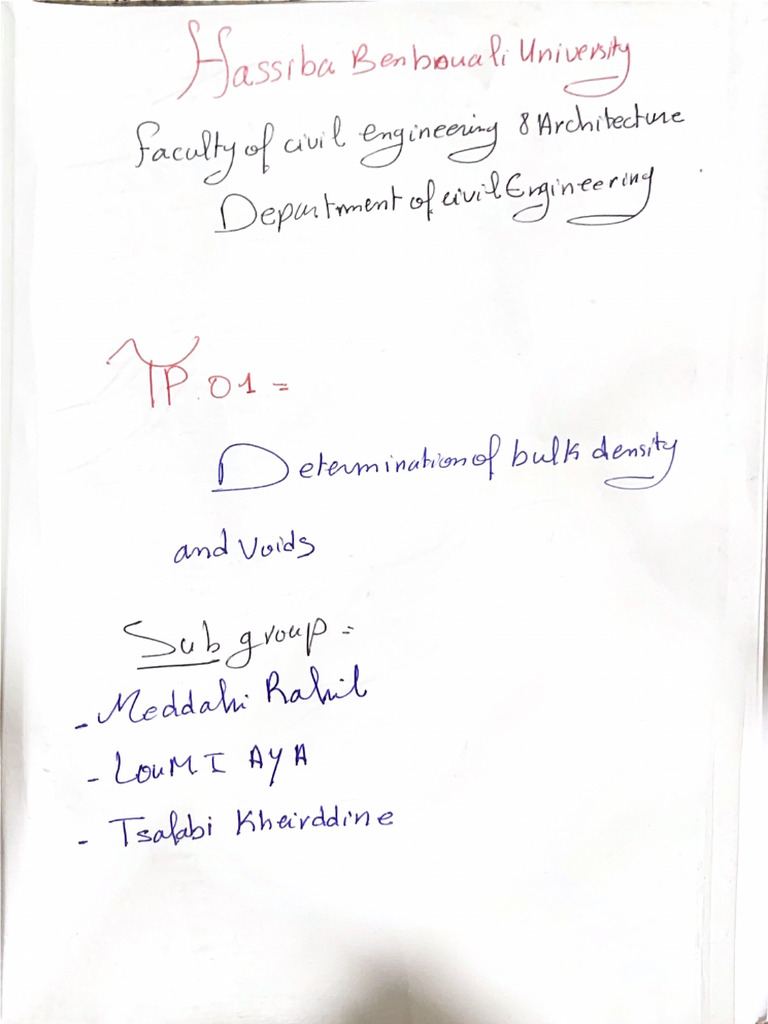 Hassiba Benbouali University
Faculty of civil engineering & Architecture
Department of civil Engineering
TP.01 =
Determination of bulk density
and Voids
Sub group =
- Meddahi Rahil
- LouMI AYA
- Tsalabi Kheirddine